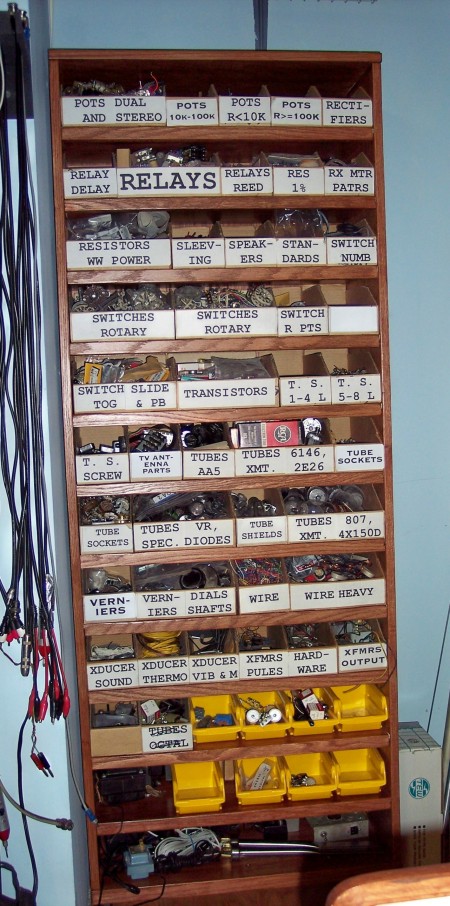 POTS DUAL
AND STEREO
POTS
10K-100K
POTS
R<10K
POTS
R>=100K
RECTI-
FIERS
RELAY
DELAY
RELAYS
RELAYS
REED
RES
1%
RX MTR
PATRS
RESISTORS
WW POWER
SLEEV-
ING
SPEAK-
ERS
STAN-
DARDS
SWITCH
NUMB
SWITCHES
ROTARY
SWITCHES
ROTARY
SWITCH
R PTS
SWITCH SLIDE
TOG & PB
TRANSISTORS
T. S.
1-4 L
T. S.
5-8 L
T. S.
SCREW
TV ANT-
ENNA
PARTS
TUBES
AA5
TUBES 6146,
XMT. 2E26
TUBE
SOCKETS
TUBE
SOCKETS
TUBES VR,
SPEC. DIODES
TUBE
SHIELDS
TUBES 807,
XMT. 4X150D
VERN-
IERS
VERN-
IERS
DIALS
SHAFTS
WIRE
WIRE HEAVY
XDUCER
SOUND
XDUCER
THERMO
XDUCER
VIB & M
XFMRS
PULES
HARD-
WARE
XFMRS
OUTPUT
TUBES
OCTAL